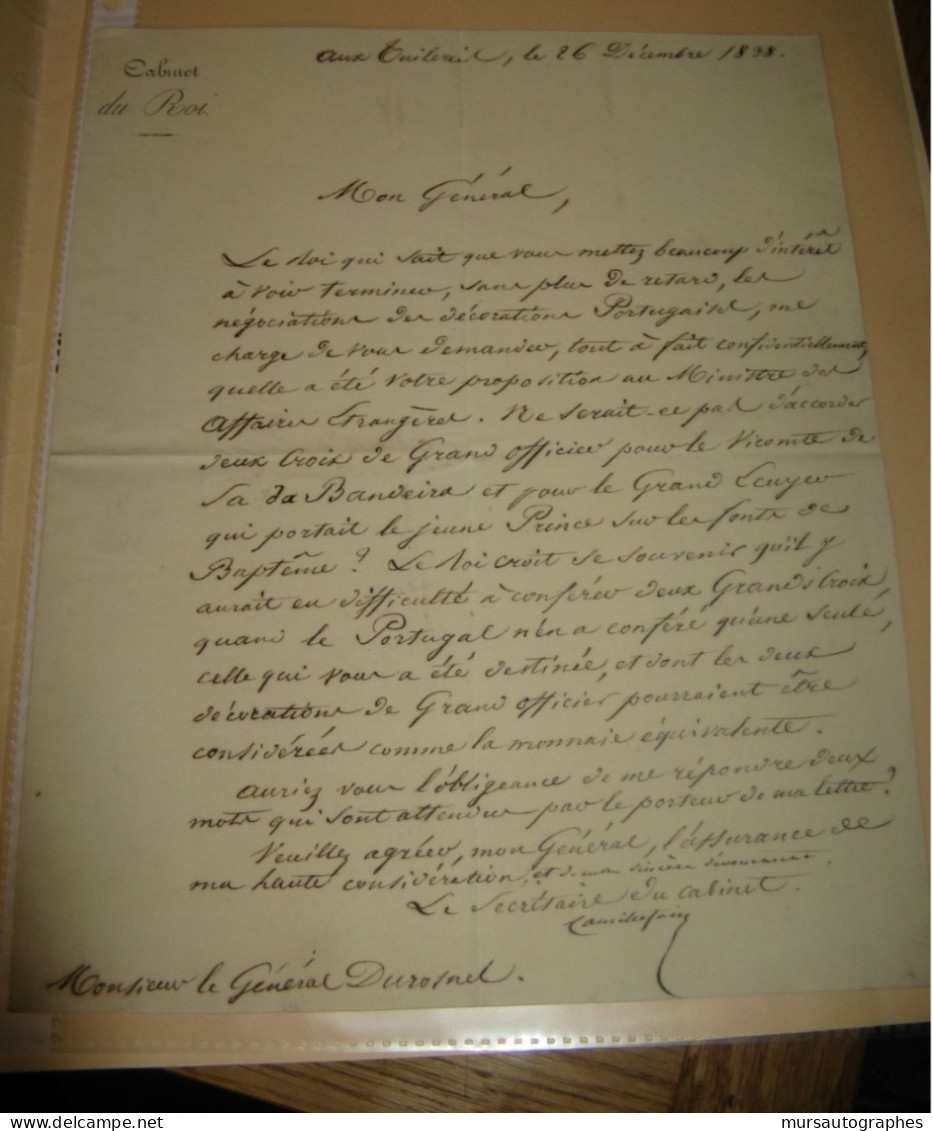 aux Tuileries, le 26 Décembre 1838.
Cabinet
du Roi.
Mon Général,
Le Roi qui sait que vous mettez beaucoup d'intérêt
à voir terminer, sans plus de retard, les
négociations des décorations Portugaises, me
charge de vous demander, tout à fait confidentiellement,
quelle a été votre proposition au Ministre des
affaires Etrangères. Ne serait-ce pas d'accorder
deux Croix de Grand officier pour le Vicomte de
Sa da Bandeira et pour le Grand Ecuyer
qui portait le jeune Prince sur les fonts de
Baptême? Le Roi croit se souvenir qu'il y
aurait eu difficulté à conférer deux Grands Croix,
quand le Portugal n'en a conféré qu'une seule,
celle qui vous a été destinée, et dont les deux
décorations de Grand officier pourraient être
considérées comme la monnaie équivalente.
auriez vous l'obligeance de me répondre deux
mots qui sont attendus par le porteur de ma lettre?
Veuillez agréer, mon Général, l'assurance de
ma haute considération, et de mon sincère dévouement.
Le Secrétaire du cabinet.
Camille fain
Monsieur le Général Durosnel.
mursautographes